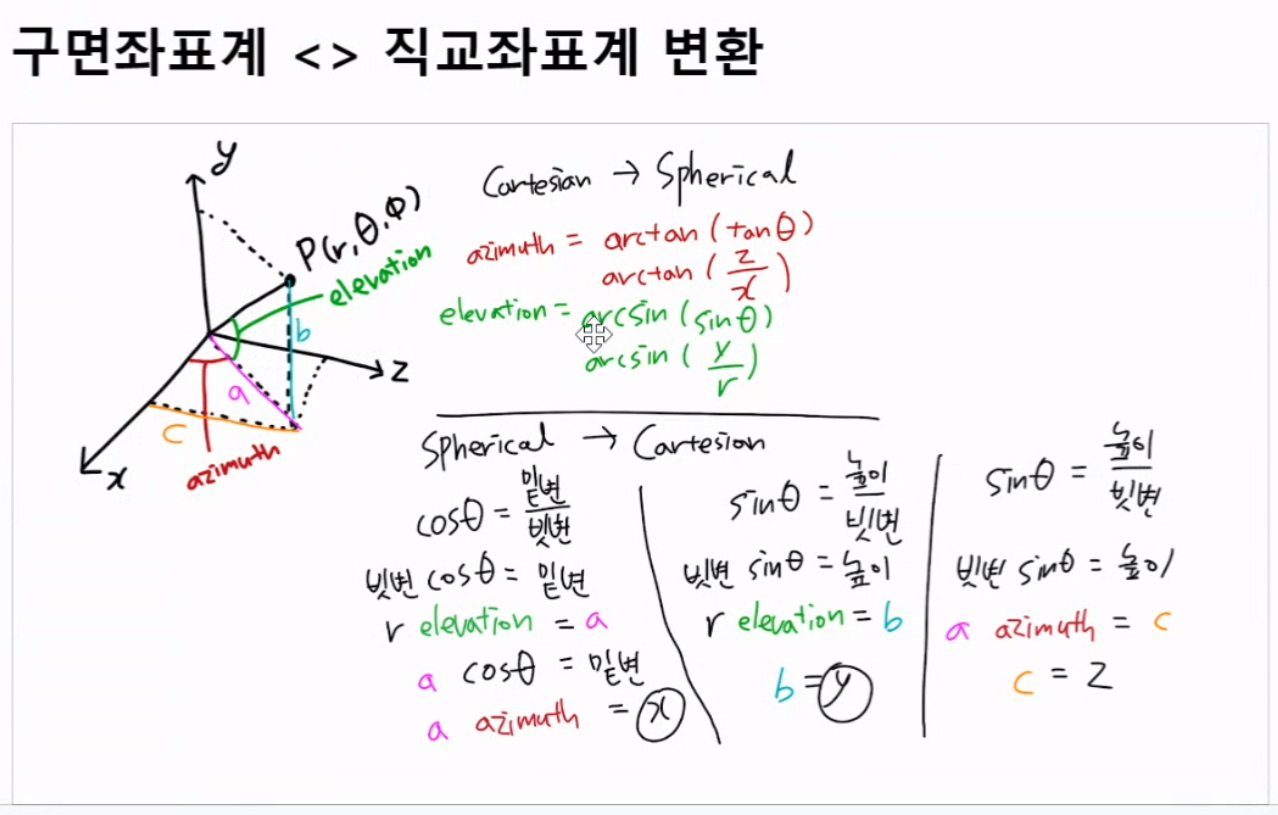 구면좌표계 <> 직교좌표계 변환
y
P(r,θ,Φ)
elevation
b
z
a
c
x
azimuth
Cartesian → Spherical
azimuth = arctan(tanθ)
arctan(z/x)
elevation = arcsin(sinθ)
arcsin(y/r)
Spherical → Cartesion
cosθ = 밑변/빗변
빗변 cosθ = 밑변
r elevation = a
a cosθ = 밑변
a azimuth = x
sinθ = 높이/빗변
빗변 sinθ = 높이
r elevation = b
b = y
sinθ = 높이/빗변
빗변 sinθ = 높이
a azimuth = c
c = z